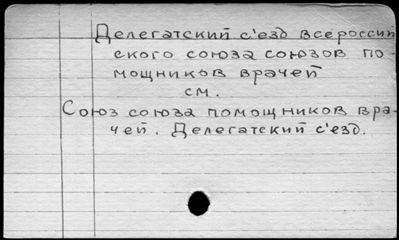 Делегатский с'езд всероссий
ского союза союзов по-
мощников врачей
см.
Союз союза помощников вра-
чей. Делегатский с'езд.